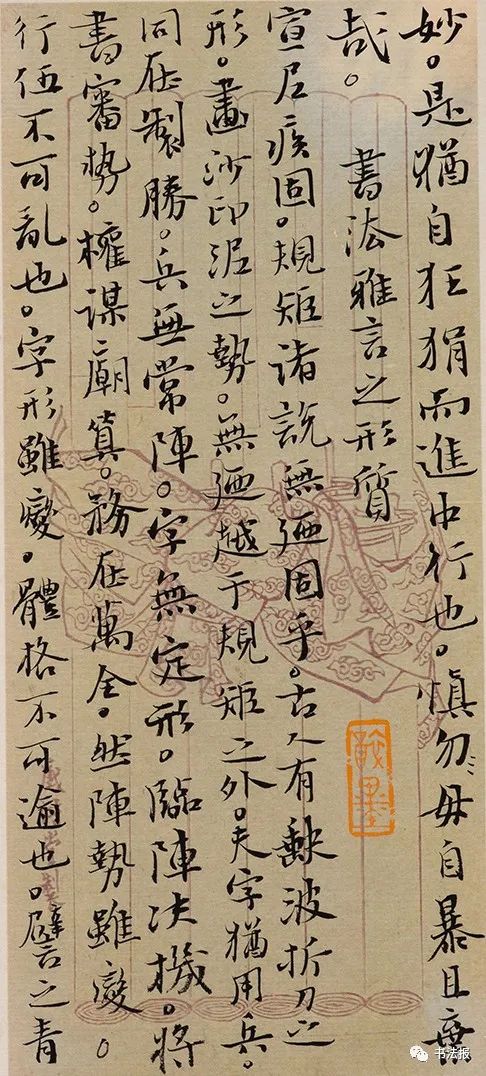 妙。是猶自狂狷而進中行也。慎勿毋自暴且棄
哉。 書法雅言之形質
宣尼疾固。規矩諸說無迺固乎。古人有缺波折刀之
形。畫沙印泥之勢。無迺越于規矩之外。夫字猶用兵。
同在製勝。兵無常陣。字無定形。臨陣決機。將
書審勢。權謀廟算。務在萬全。然陣勢雖變。
行伍不可亂也。字形雖變。體格不可逾也。譬之青
书法报